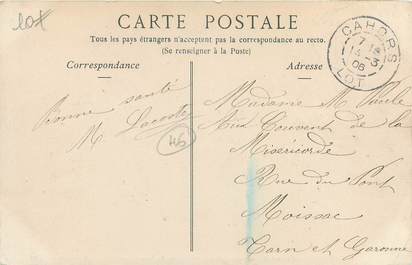 10x
CARTE POSTALE
Tous les pays étrangers n'acceptent pas la correspondance au recto.
(Se renseigner à la Poste)
Correspondance
Adresse
CAHORS
LOT
Bonne santé
M. Lacoste
46
Madame M. Paule
Aux Couvent de la
Miséricorde
Rue du Pont
Moissac
Tarn et Garonne